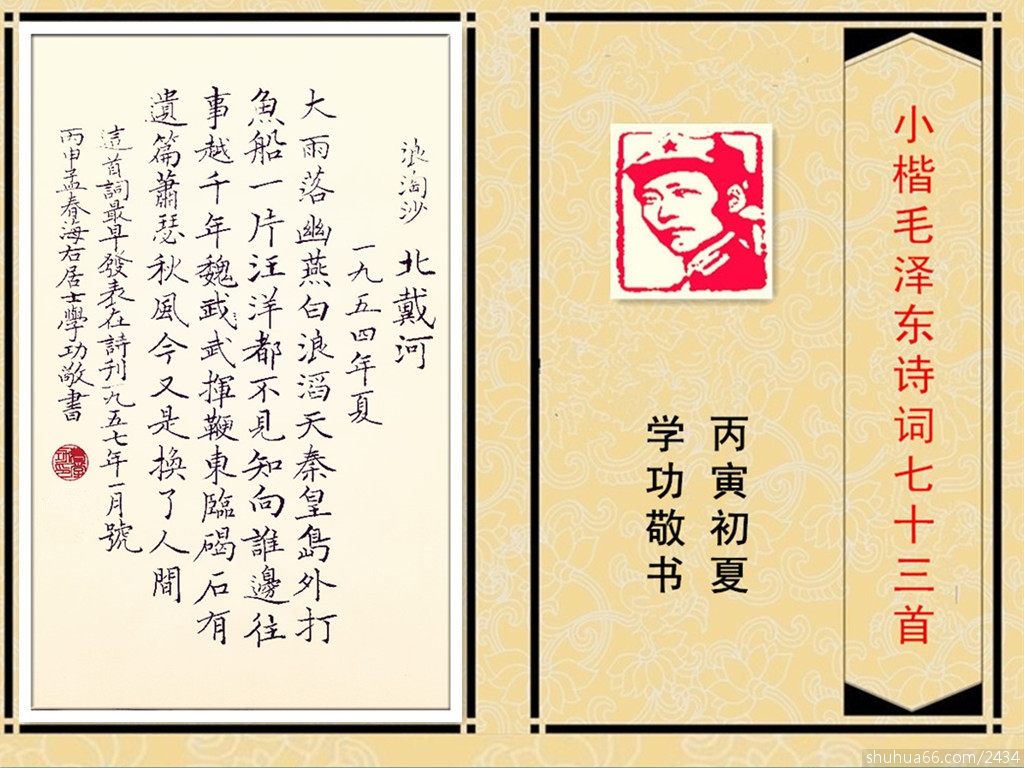 小楷毛泽东诗词七十三首
丙寅初夏
学功敬书
浪淘沙 北戴河
一九五四年夏
大雨落幽燕白浪滔天秦皇島外打
魚船一片汪洋都不見知向誰邊往
事越千年魏武武揮鞭東臨碣石有
遺篇蕭瑟秋風今又是換了人間
這首詞最早發表在詩刊一九五七年一月號
丙申孟春海右居士學功敬書
shuhua66.com/2434